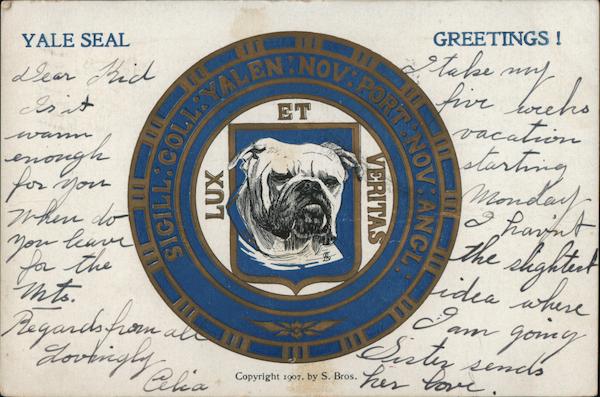 YALE SEAL
GREETINGS!
Dear Kid
Is it
warm
enough
for you
When do
you leave
for the
Mts.
Regards from all
Lovingly
Celia
SIGILL: COLL: YALEN: NOV: PORT: NOV: ANGL:
LUX
ET
VERITAS
I take my
five weeks
vacation
starting
Monday
I havn't
the slightest
idea where
I am going
Sister sends
her love.
Copyright 1907. by S. Bros.